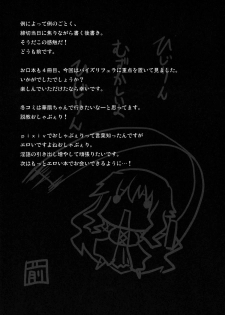 例によって例のごとく、
締切当日に焦りながら書く後書き。
そうだこの感触だ！
どうも前です。
お口本も４冊目、今回はパイズリフェラに重点を置いて見ました。
いかがでしたでしょうか？
楽しんでいただけたなら幸いです。
冬コミは華扇ちゃんで行きたいなーと思ってます。
説教おしゃぶぇり！
ｐｉｘｉｖでおしゃぶぇりって言葉知ったんですが
エロいですよねおしゃぶぇり。
淫語の引き出し増やして頑張りたいです。
次はもっとエロい本でお会いできるように…！
前